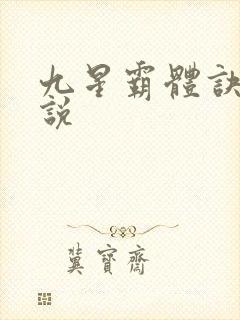 九星霸體訣
說
冀寶齋